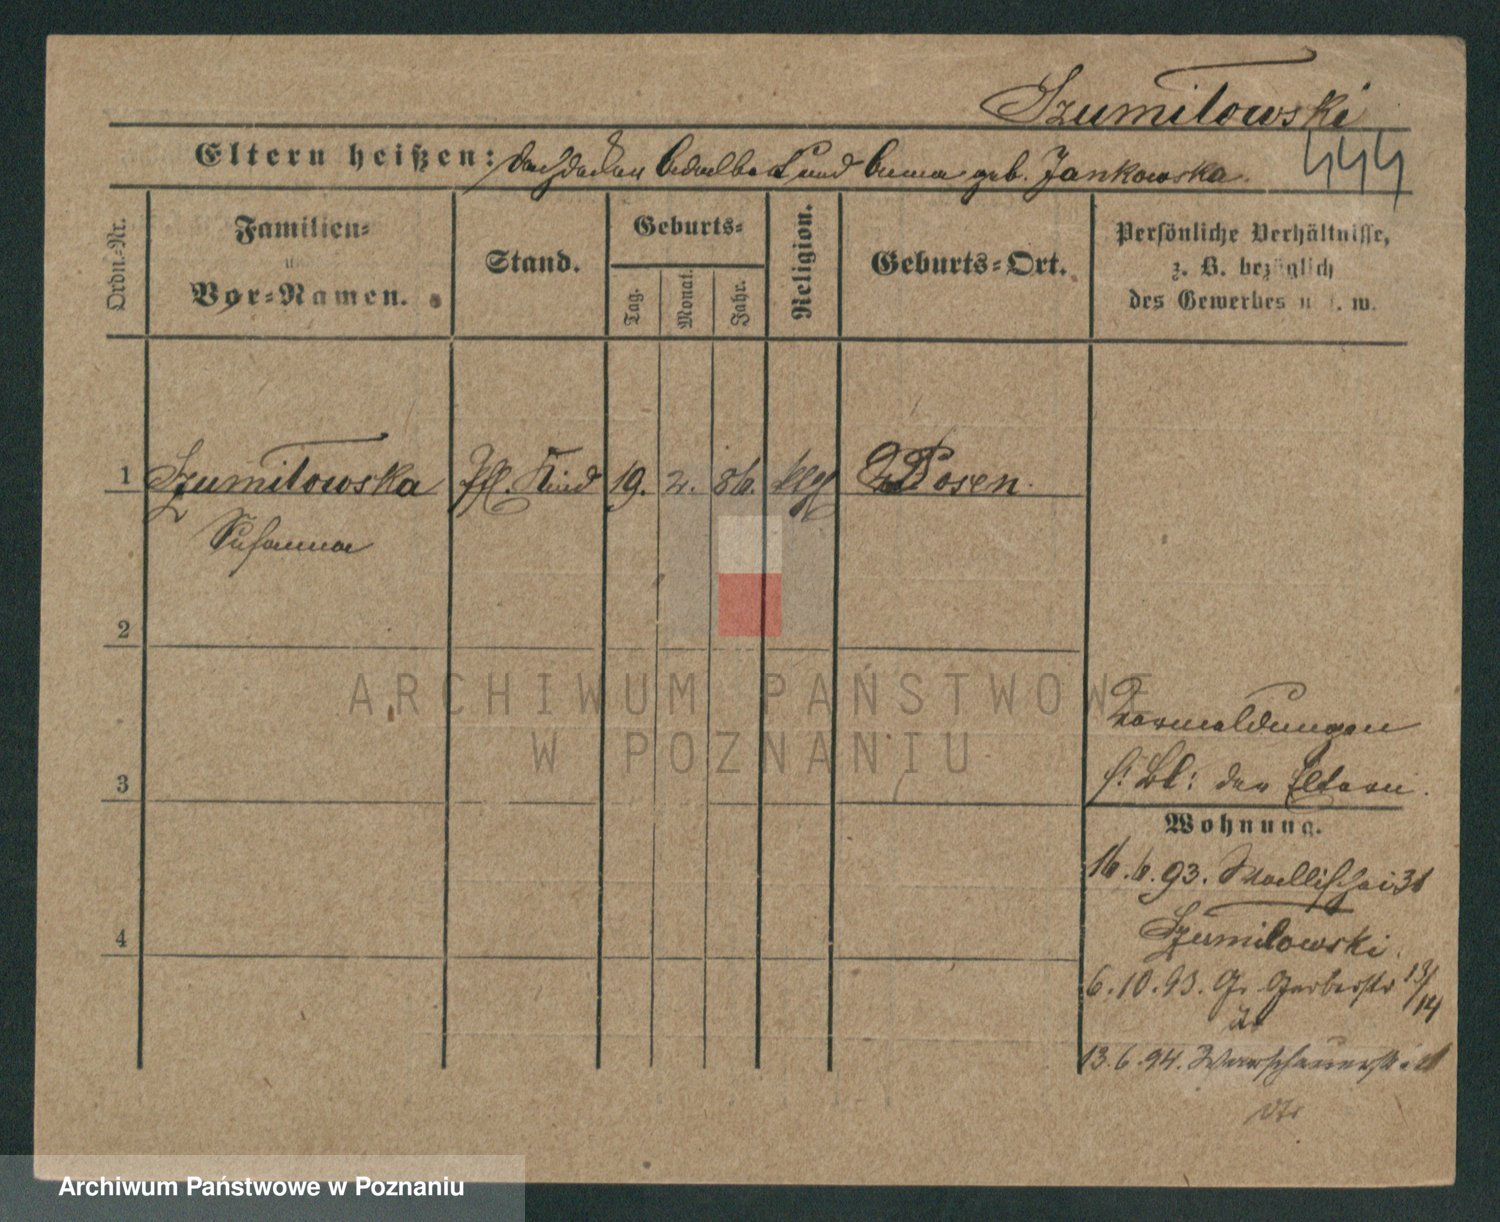 Szumitowski
Eltern heißen: Adalbert und Anna geb. Jankowska. 444
Ordn.-Nr.
Familien-
und
Vor-Namen.
Stand.
Geburts-
Tag.
Monat.
Jahr.
Religion.
Geburts-Ort.
Persönliche Verhältnisse,
z. B. bezüglich
des Gewerbes u. s. w.
1 Szumitowska Pfl. Kind 19. 2. 86. Posen.
Susanna
2
Vormeldungen
3 s. Bl: der Eltern.
Wohnung.
16.6.93. Wallischei 31
Szumitowski.
4
6.10.93. Gr. Gerberstr 13/14
13.6.94. Warschauerstr.
Archiwum Państwowe w Poznaniu
ARCHIWUM PAŃSTWOWE
W POZNANIU